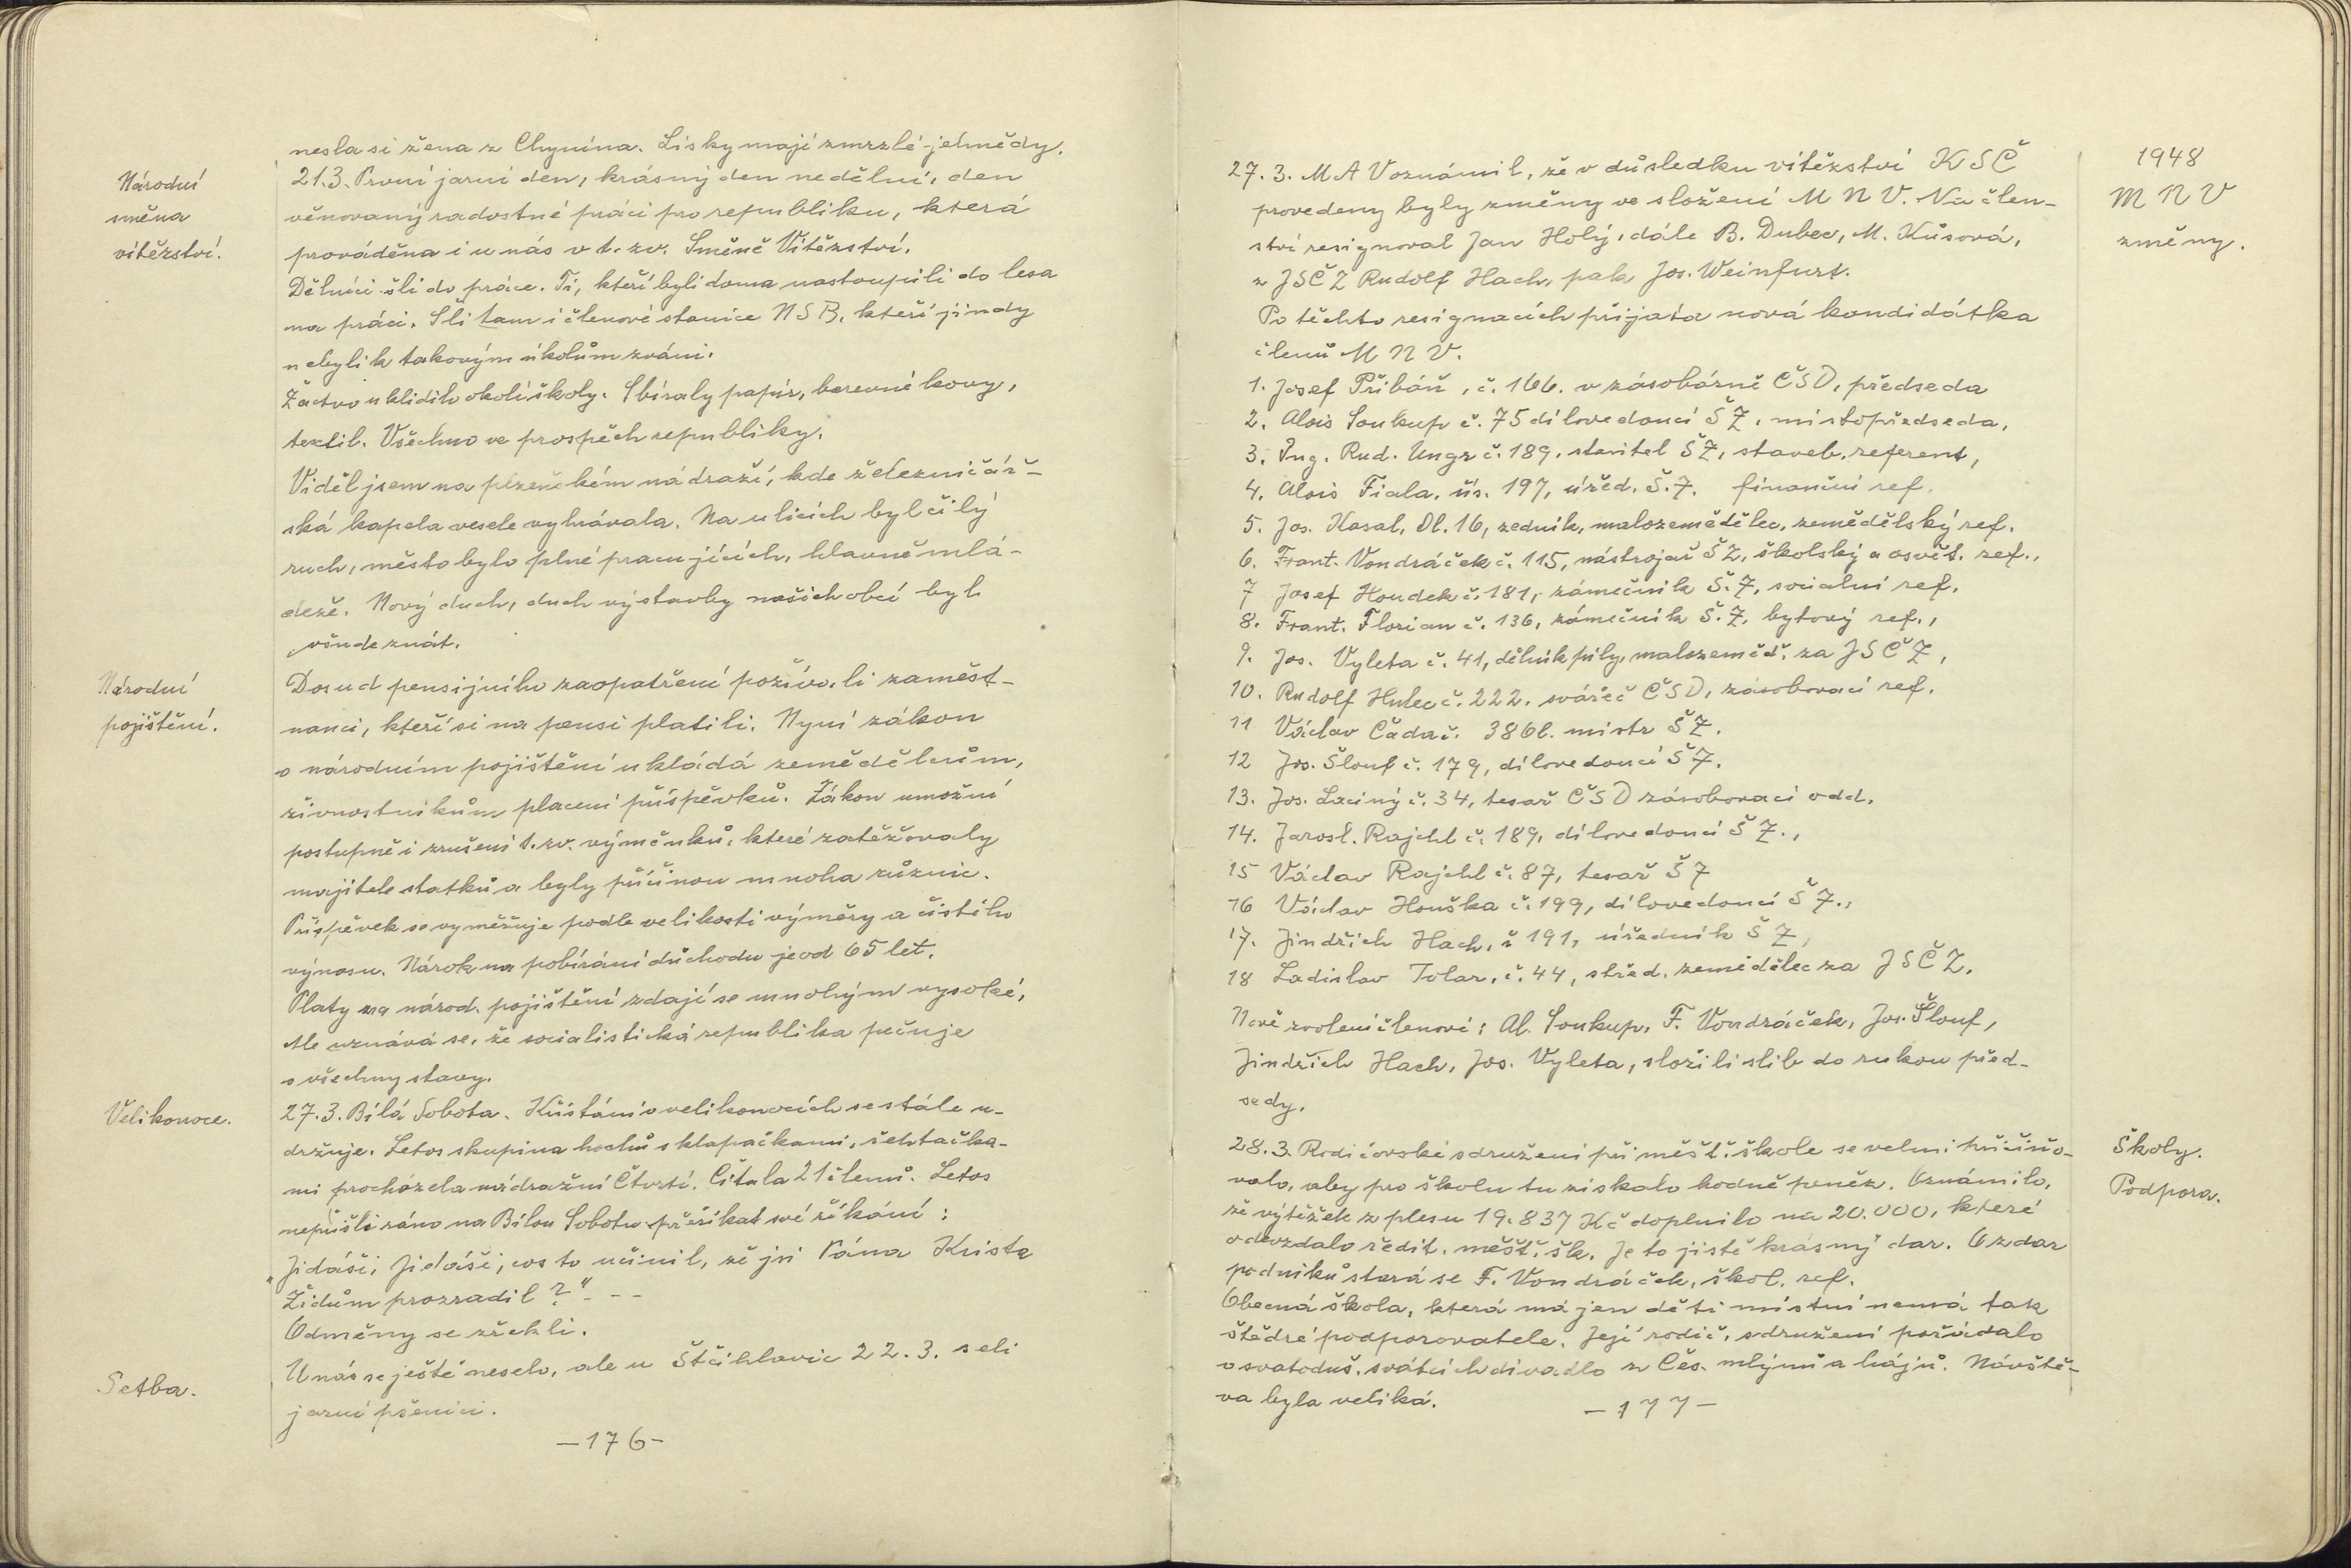 nesla si žena z Chynína. Lísky mají zmrzlé jehnědy.
Národní
směna
vítězství.
21.3. První jarní den, krásný den nedělní, den
věnovaný radostné práci pro republiku, která
prováděna i u nás v t. zv. Směně Vítězství.
Dělníci šli do práce. Ti, kteří byli doma nastoupili do lesa
na práci. Šli tam i členové stanice NSB, kteří jindy
nebyli k takovým úkolům zváni.
Žactvo uklidilo okolí školy. Sbíraly papír, barevné kovy,
textil. Všechno ve prospěch republiky.
Viděl jsem na plzeňském nádraží, kde železničář-
ská kapela vesele vyhrávala. Na ulicích byl čilý
ruch, město bylo plné pracujících, hlavně mlá-
deže. Nový duch, duch výstavby našich obcí byl
všude znát.
Národní
pojištění.
Dosud pensijního zaopatření požívali zaměst-
nanci, kteří si na pensi platili. Nyní zákon
o národním pojištění ukládá zemědělcům,
živnostníkům placení příspěvků. Zákon umožní
postupně i zrušení t. zv. výměnků, které zatěžovaly
majitele statků a byly příčinou mnoha různic.
Příspěvek se vyměřuje podle velikosti výměry a čistého
výnosu. Nárok na pobírání důchodu je od 65 let.
Platy na národ. pojištění zdají se mnohým vysoké,
ale uznává se, že socialistická republika pečuje
o všechny stavy.
Velikonoce.
27.3. Bílá Sobota. Křístání o velikonocích se stále u-
držuje. Letos skupina hochů s klapačkami, řehtačka-
mi procházela nádražní Čtvrtí. Čítala 21 členů. Letos
nepřišli ráno na Bílou Sobotu přeříkat své říkání:
„Jidáši, Jidáši, cos to učinil, že jsi Pána Krista
Židům prozradil?" - - -
Odměny se zřekli.
Setba.
U nás se ještě neselo, ale u Štěihlavic 22.3. seli
jarní pšenici.
- 176 -
1948
M N V
změny.
27.3. MAV oznámil, že v důsledku vítězství KSČ
provedeny byly změny ve složení M N V. Na člen-
ství resignoval Jan Holý, dále B. Dubec, M. Kůsová,
z JSČZ Rudolf Hach, pak Jos. Weinfurt.
Po těchto resignacích přijata nová kandidátka
členů M N V.
1. Josef Přibáň, č. 166. v zásobárně ČSD, předseda
2. Alois Soukup č. 75 dílovedoucí ŠZ, místopředseda,
3. Ing. Rud. Ungr č. 189, stavitel ŠZ, staveb. referent,
4. Alois Fiala, čís. 197, úřed. Š.Z. finanční ref.
5. Jos. Kasal, Dl. 16, zedník, malozemědělec, zemědělský ref.
6. Frant. Vondráček č. 115, nástrojař ŠZ, školský a osvět. ref.,
7 Josef Houdek č. 181, zámečník Š.Z, socialní ref.
8. Frant. Florian č. 136, zámečník Š.Z, bytový ref.,
9. Jos. Vyleta č. 41, dělník pily, malozeměd. za JSČZ,
10. Rudolf Hulec č. 222. svářeč ČSD, zásobovací ref.
11 Václav Čada č. 386l. mistr ŠZ.
12 Jos. Šlouf č. 179, dílovedoucí ŠZ.
13. Jos. Laciný č. 34, tesař ČSD zásobovací odd.
14. Jarosl. Rajchl č. 189, dílovedoucí ŠZ.,
15 Václav Rajchl č. 87, tesař ŠZ
16 Václav Houška č. 199, dílovedoucí ŠZ.,
17. Jindřich Hach, č 191, úředník ŠZ,
18 Ladislav Tolar, č. 44, střed. zemědělec za JSČZ.
Nově zvolení členové: Al. Soukup, F. Vondráček, Jos. Šlouf,
Jindřich Hach, Jos. Vyleta, složili slib do rukou před-
sedy.
Školy.
Podpora.
28.3. Rodičovské sdružení při měšť. škole se velmi přičiňo-
valo, aby pro školu tu získalo hodně peněz. Oznámilo,
že výtěžek z plesu 19.837 Kč doplnilo na 20.000, které
odevzdalo ředit. měšť. šk. Je to jistě krásný dar. O zdar
podniků stará se F. Vondráček, škol. ref.
Obecná škola, která má jen děti místní nemá tak
štědré podporovatele. Její rodič. sdružení pořádalo
o svatoduš. svátcích divadlo Z Čes. mlýnů a hájů. Návště-
va byla veliká.
- 177 -